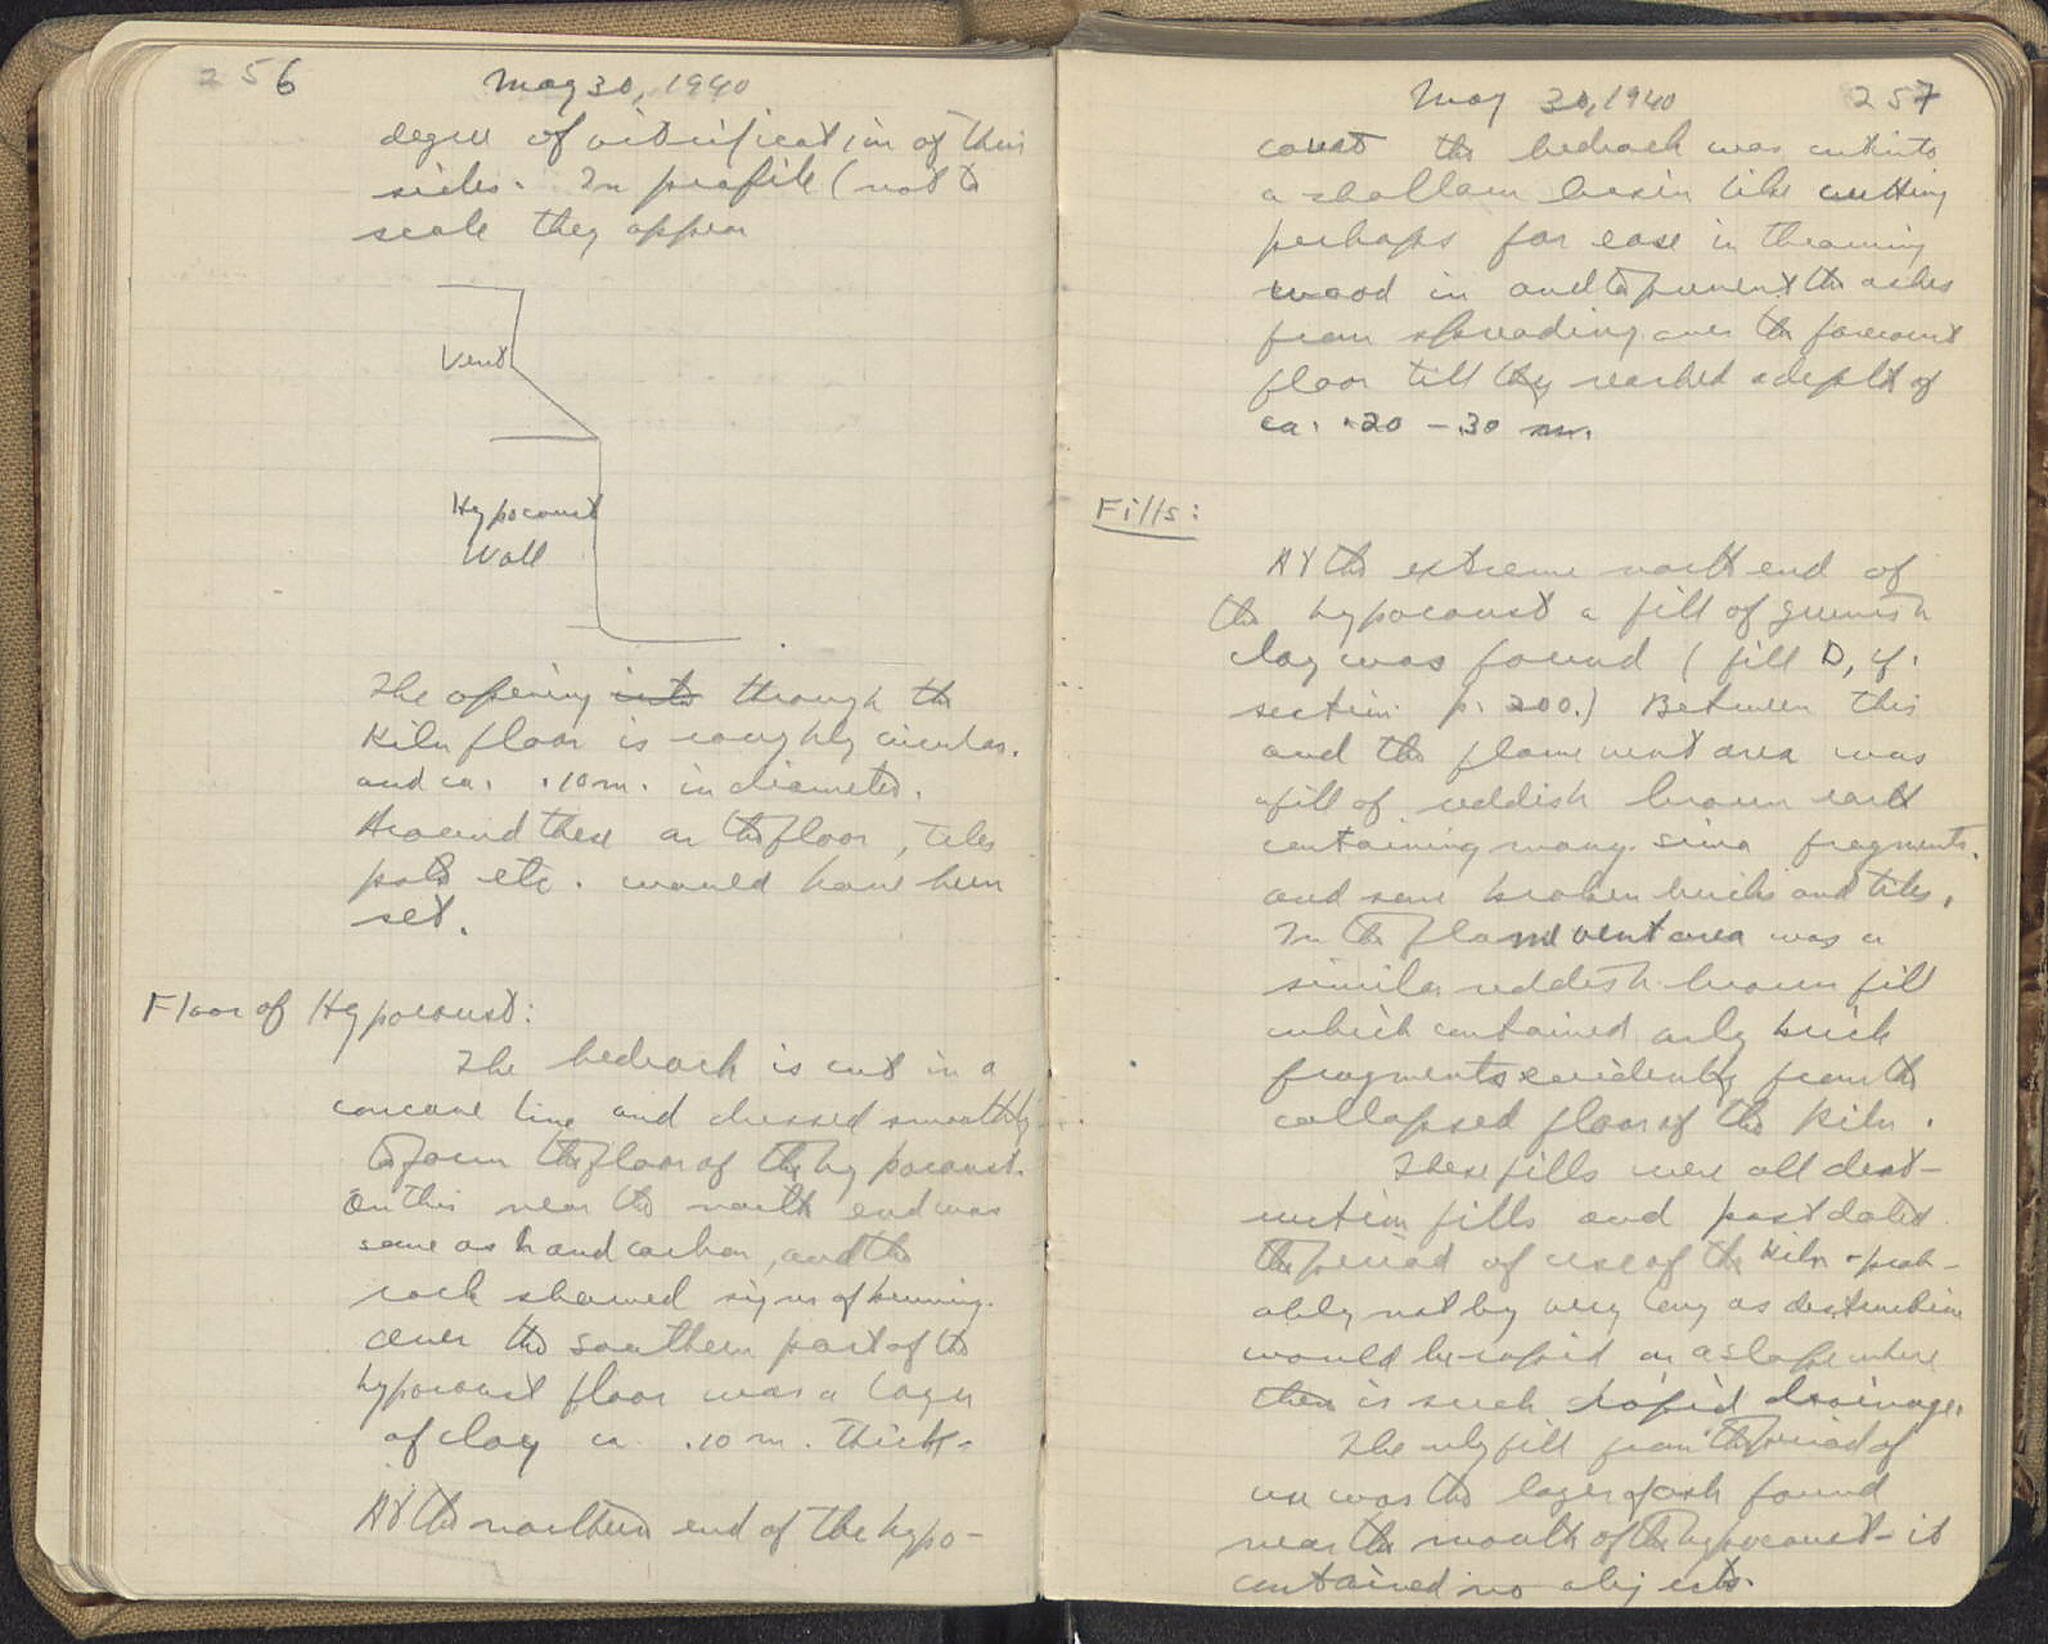 256 May 30, 1940
degree of vitrification of their
sides. In profile (not to
scale they appear
Vent
Hypocaust
Wall
The opening into through the
Kiln floor is roughly circular.
and ca. .10 m. in diameter.
Around these on the floor, tiles
pots etc. would have been
set.
Floor of Hypocaust:
The bedrock is cut in a
concave line and dressed smoothly
to form the floor of the hypocaust.
On this near the north end was
some ash and carbon, and the
rock showed signs of burning.
Over the southern part of the
hypocaust floor was a layer
of clay ca .10 m. thick.
At the northern end of the hypo-
May 30, 1940 257
caust the bedrock was cut into
a shallow basin like cutting
perhaps for ease in throwing
wood in and to prevent the ashes
from spreading over the forecourt
floor till they reached a depth of
ca. .20 - .30 m.
Fills:
At the extreme north end of
the hypocaust a fill of greenish
clay was found (fill D, cf.
section p. 200.) Between this
and the flame vent area was
a fill of reddish brown earth
containing many sima fragments.
and some broken bricks and tiles.
In the flame vent area was a
similar reddish brown fill
which contained only brick
fragments evidently from the
collapsed floor of the Kiln.
These fills were all dest-
ruction fills and post dated
the period of use of the Kiln - prob-
ably not by very long as destruction
would be rapid on a slope where
there is such rapid drainage.
The only fill from the period of
use was the layer of ash found
near the mouth of the hypocaust - it
contained no objects.